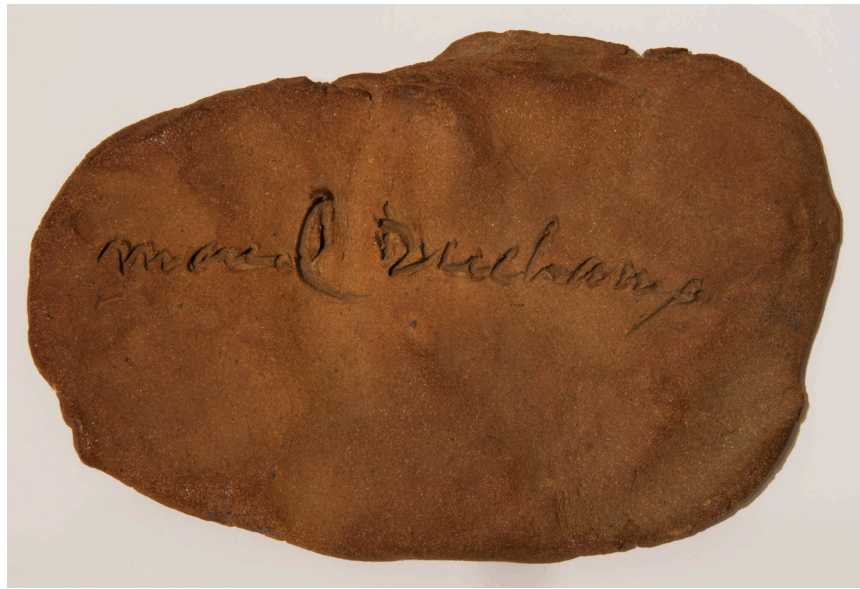 marcel Duchamp